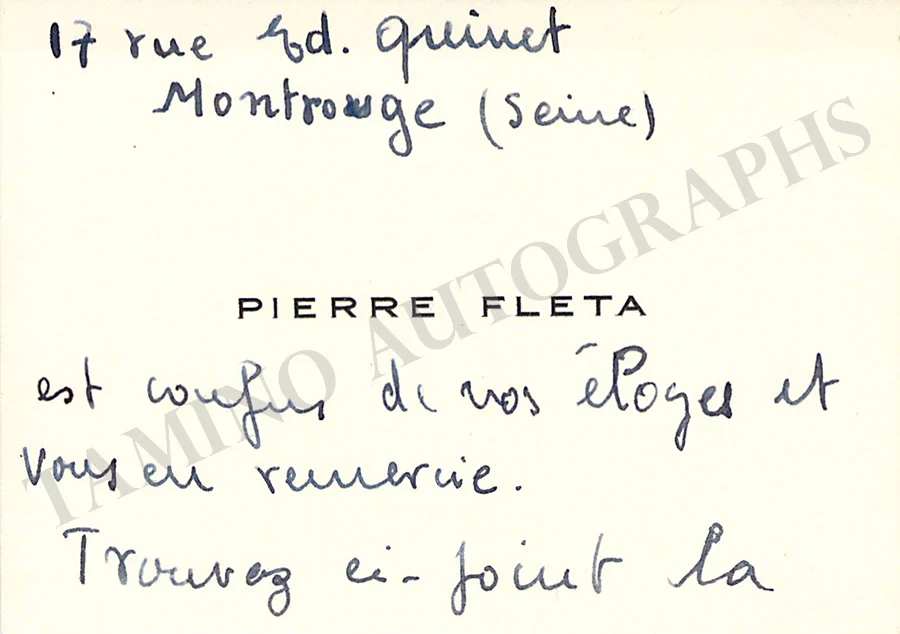 17 rue Ed. Quinet
Montrouge (Seine)
PIERRE FLETA
est confus de vos éloges et
vous en remercie.
Trouvez ci-joint la
TAMINO AUTOGRAPHS